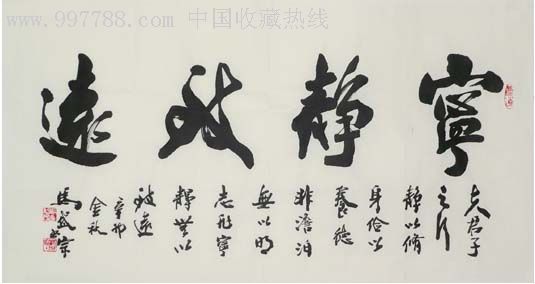 www.997788.com 中国收藏热线
寧静致遠
夫君子
之行
静以脩
身俭以
養德
非澹泊
無以明
志非寧
静無以
致遠
辛卯
金秋
馬